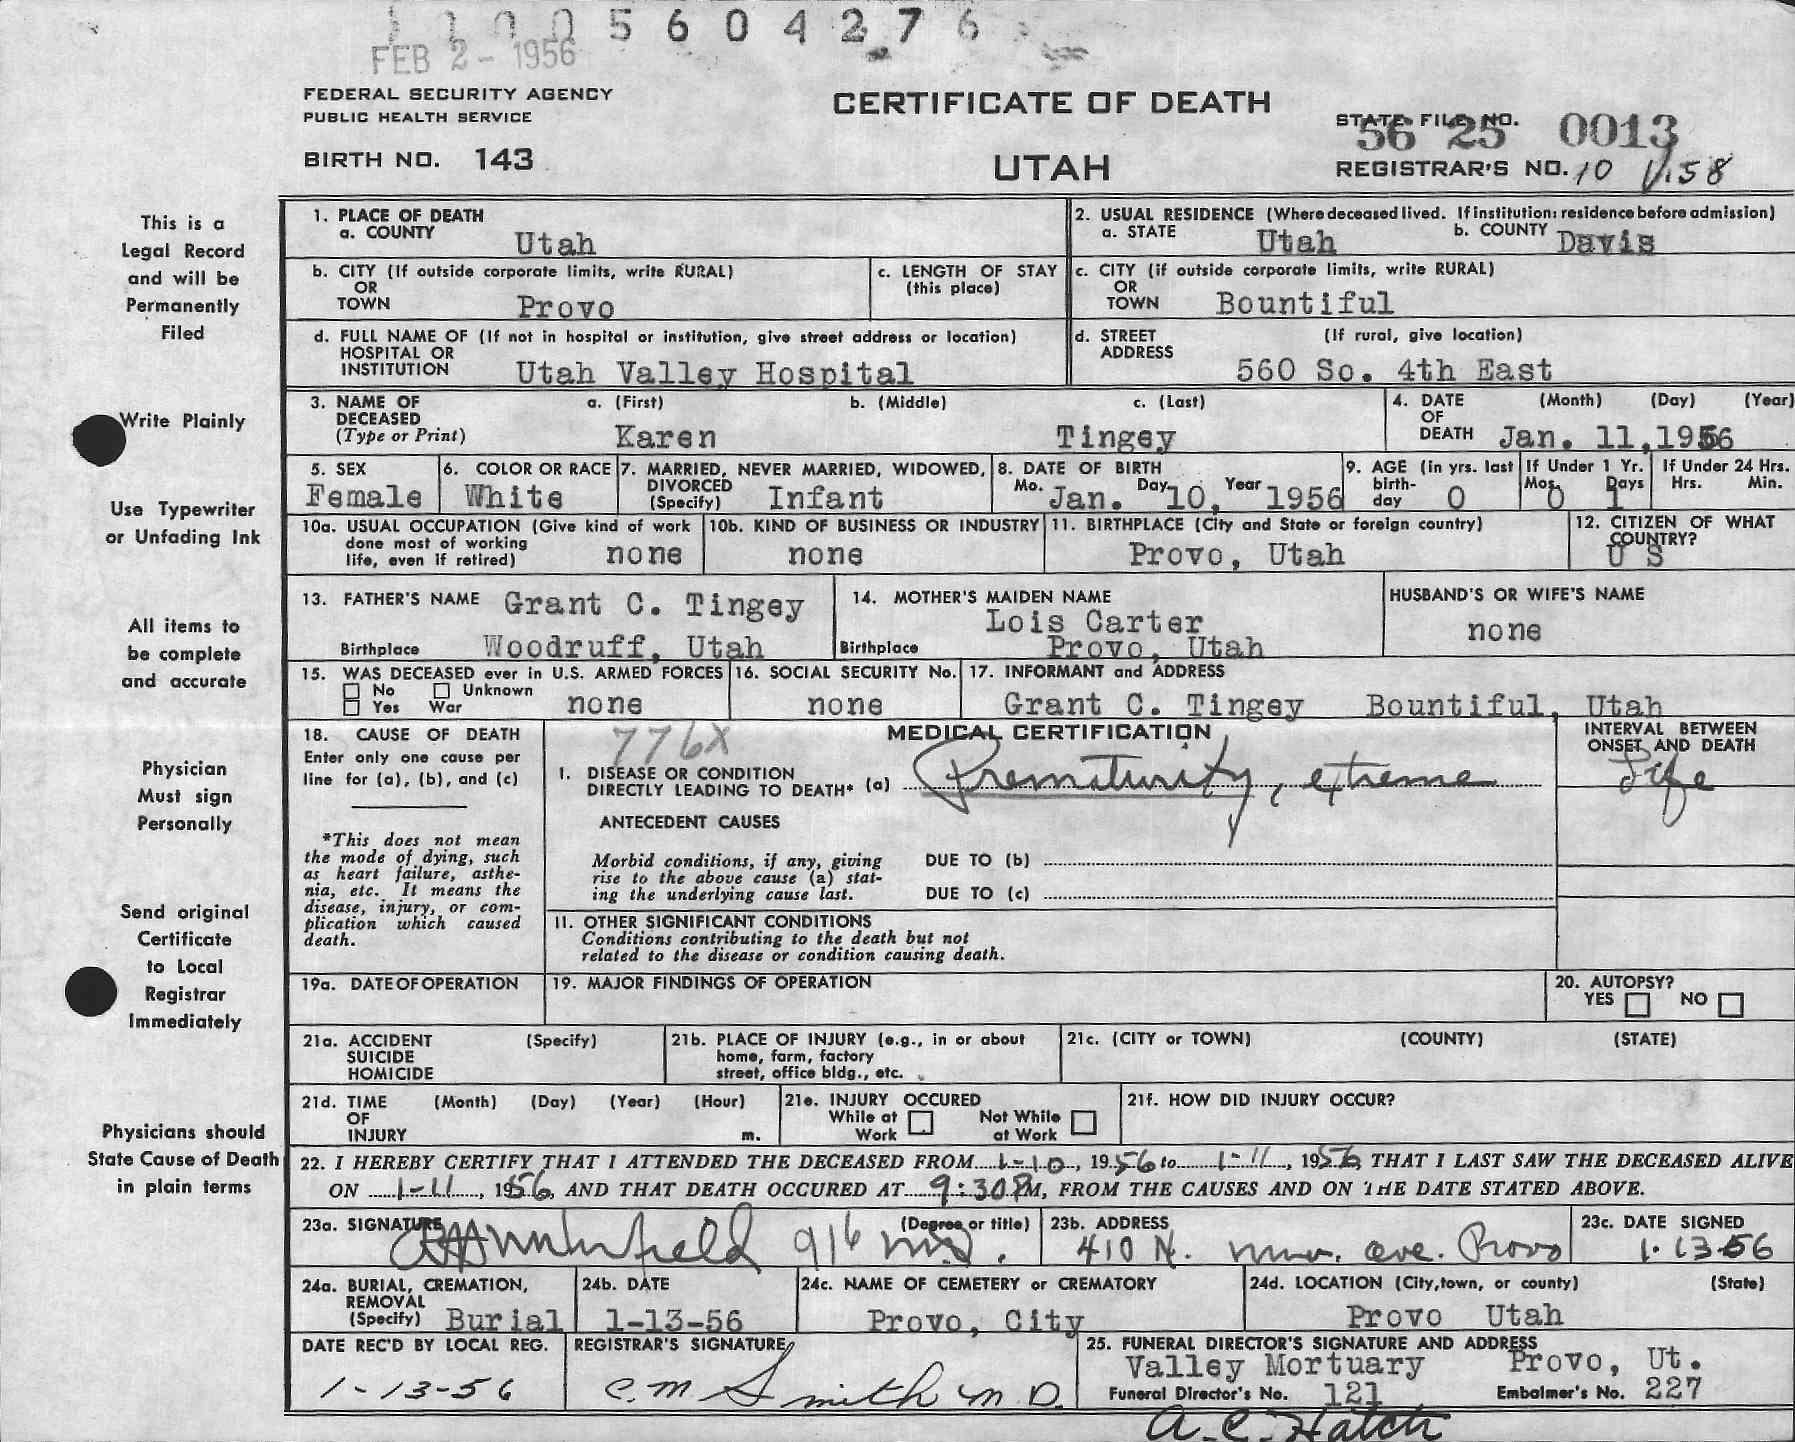 5 6 0 4 2 7 6
FEB 2 - 1956
FEDERAL SECURITY AGENCY
PUBLIC HEALTH SERVICE
BIRTH NO. 143
CERTIFICATE OF DEATH
UTAH
STATE FILE NO. 56 25 0013
REGISTRAR'S NO. 10 V.58
This is a
Legal Record
and will be
Permanently
Filed
Write Plainly
Use Typewriter
or Unfading Ink
All items to
be complete
and accurate
Physician
Must sign
Personally
Send original
Certificate
to Local
Registrar
Immediately
Physicians should
State Cause of Death
in plain terms
1. PLACE OF DEATH
a. COUNTY Utah
2. USUAL RESIDENCE (Where deceased lived. If institution: residence before admission)
a. STATE Utah b. COUNTY Davis
b. CITY (If outside corporate limits, write RURAL)
OR
TOWN Provo
c. LENGTH OF STAY
(this place)
c. CITY (if outside corporate limits, write RURAL)
OR
TOWN Bountiful
d. FULL NAME OF (If not in hospital or institution, give street address or location)
HOSPITAL OR
INSTITUTION Utah Valley Hospital
d. STREET (If rural, give location)
ADDRESS
560 So. 4th East
3. NAME OF a. (First) b. (Middle) c. (Last)
DECEASED
(Type or Print) Karen Tingey
4. DATE (Month) (Day) (Year)
OF
DEATH Jan. 11, 1956
5. SEX
Female
6. COLOR OR RACE
White
7. MARRIED, NEVER MARRIED, WIDOWED,
DIVORCED
(Specify) Infant
8. DATE OF BIRTH
Mo. Jan. Day 10, Year 1956
9. AGE (in yrs. last
birth-
day 0
If Under 1 Yr.
Mos. 0 Days 1
If Under 24 Hrs.
Hrs. Min.
10a. USUAL OCCUPATION (Give kind of work
done most of working
life, even if retired) none
10b. KIND OF BUSINESS OR INDUSTRY
none
11. BIRTHPLACE (City and State or foreign country)
Provo, Utah
12. CITIZEN OF WHAT
COUNTRY?
U S
13. FATHER'S NAME Grant C. Tingey
Birthplace Woodruff, Utah
14. MOTHER'S MAIDEN NAME
Lois Carter
Birthplace Provo, Utah
HUSBAND'S OR WIFE'S NAME
none
15. WAS DECEASED ever in U.S. ARMED FORCES
No Unknown
Yes War none
16. SOCIAL SECURITY No.
none
17. INFORMANT and ADDRESS
Grant C. Tingey Bountiful, Utah
18. CAUSE OF DEATH
Enter only one cause per
line for (a), (b), and (c)
*This does not mean
the mode of dying, such
as heart failure, asthe-
nia, etc. It means the
disease, injury, or com-
plication which caused
death.
776X
MEDICAL CERTIFICATION
I. DISEASE OR CONDITION
DIRECTLY LEADING TO DEATH* (a) Prematurity, extreme
ANTECEDENT CAUSES
Morbid conditions, if any, giving
rise to the above cause (a) stat-
ing the underlying cause last.
DUE TO (b)
DUE TO (c)
INTERVAL BETWEEN
ONSET AND DEATH
Life
II. OTHER SIGNIFICANT CONDITIONS
Conditions contributing to the death but not
related to the disease or condition causing death.
19a. DATE OF OPERATION
19. MAJOR FINDINGS OF OPERATION
20. AUTOPSY?
YES NO
21a. ACCIDENT (Specify)
SUICIDE
HOMICIDE
21b. PLACE OF INJURY (e.g., in or about
home, farm, factory
street, office bldg., etc.
21c. (CITY or TOWN) (COUNTY) (STATE)
21d. TIME (Month) (Day) (Year) (Hour)
OF
INJURY m.
21e. INJURY OCCURED
While at Work Not While at Work
21f. HOW DID INJURY OCCUR?
22. I HEREBY CERTIFY THAT I ATTENDED THE DECEASED FROM 1-10, 1956 to 1-11, 1956, THAT I LAST SAW THE DECEASED ALIVE
ON 1-11, 1956, AND THAT DEATH OCCURED AT 9:30 PM, FROM THE CAUSES AND ON THE DATE STATED ABOVE.
23a. SIGNATURE (Degree or title)
916 M.D.
23b. ADDRESS
410 N. Univ. ave. Provo
23c. DATE SIGNED
1-13-56
24a. BURIAL, CREMATION,
REMOVAL
(Specify) Burial
24b. DATE
1-13-56
24c. NAME OF CEMETERY or CREMATORY
Provo, City
24d. LOCATION (City, town, or county) (State)
Provo Utah
DATE REC'D BY LOCAL REG.
1-13-56
REGISTRAR'S SIGNATURE
C. M. Smith M.D.
25. FUNERAL DIRECTOR'S SIGNATURE AND ADDRESS
Valley Mortuary Provo, Ut.
Funeral Director's No. 121 Embalmer's No. 227
A. C. Hatch